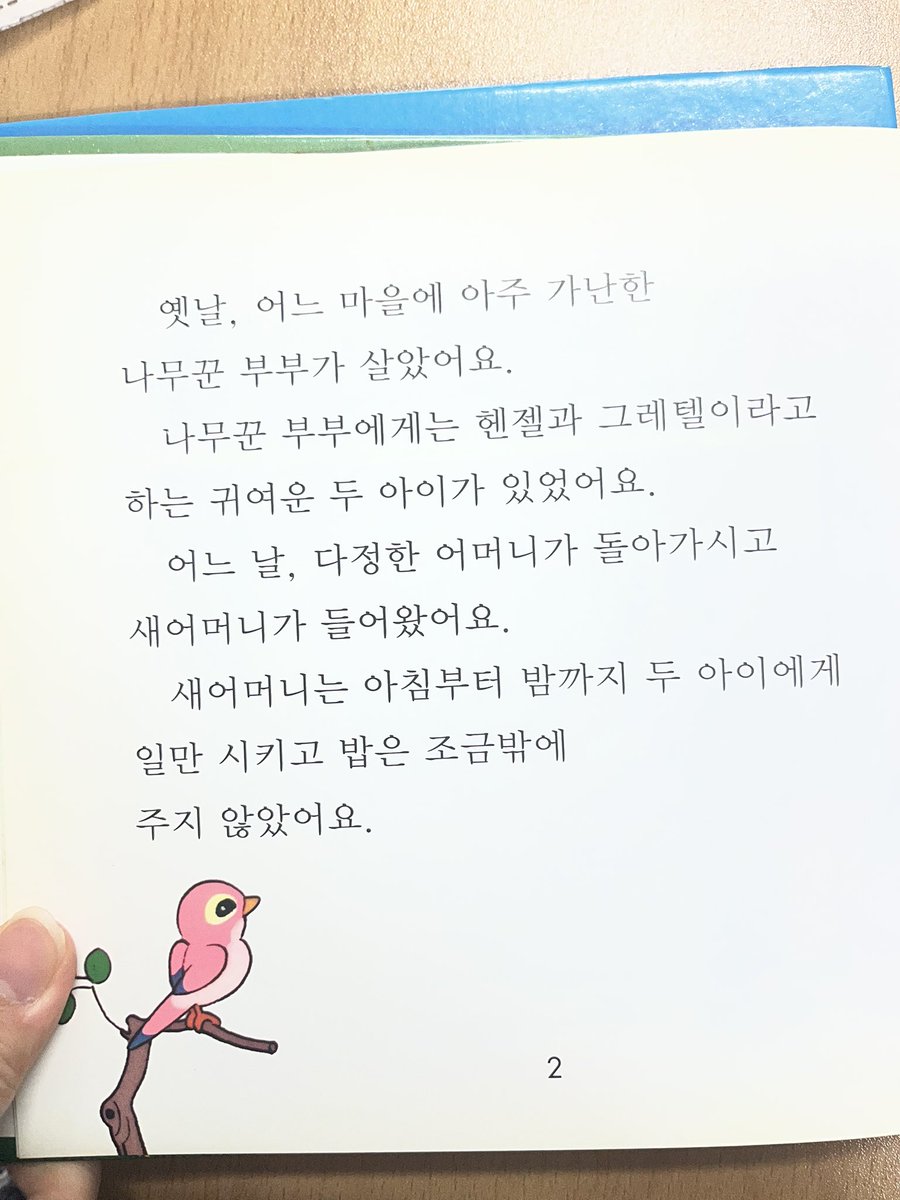 옛날, 어느 마을에 아주 가난한
나무꾼 부부가 살았어요.
나무꾼 부부에게는 헨젤과 그레텔이라고
하는 귀여운 두 아이가 있었어요.
어느 날, 다정한 어머니가 돌아가시고
새어머니가 들어왔어요.
새어머니는 아침부터 밤까지 두 아이에게
일만 시키고 밥은 조금밖에
주지 않았어요.
2